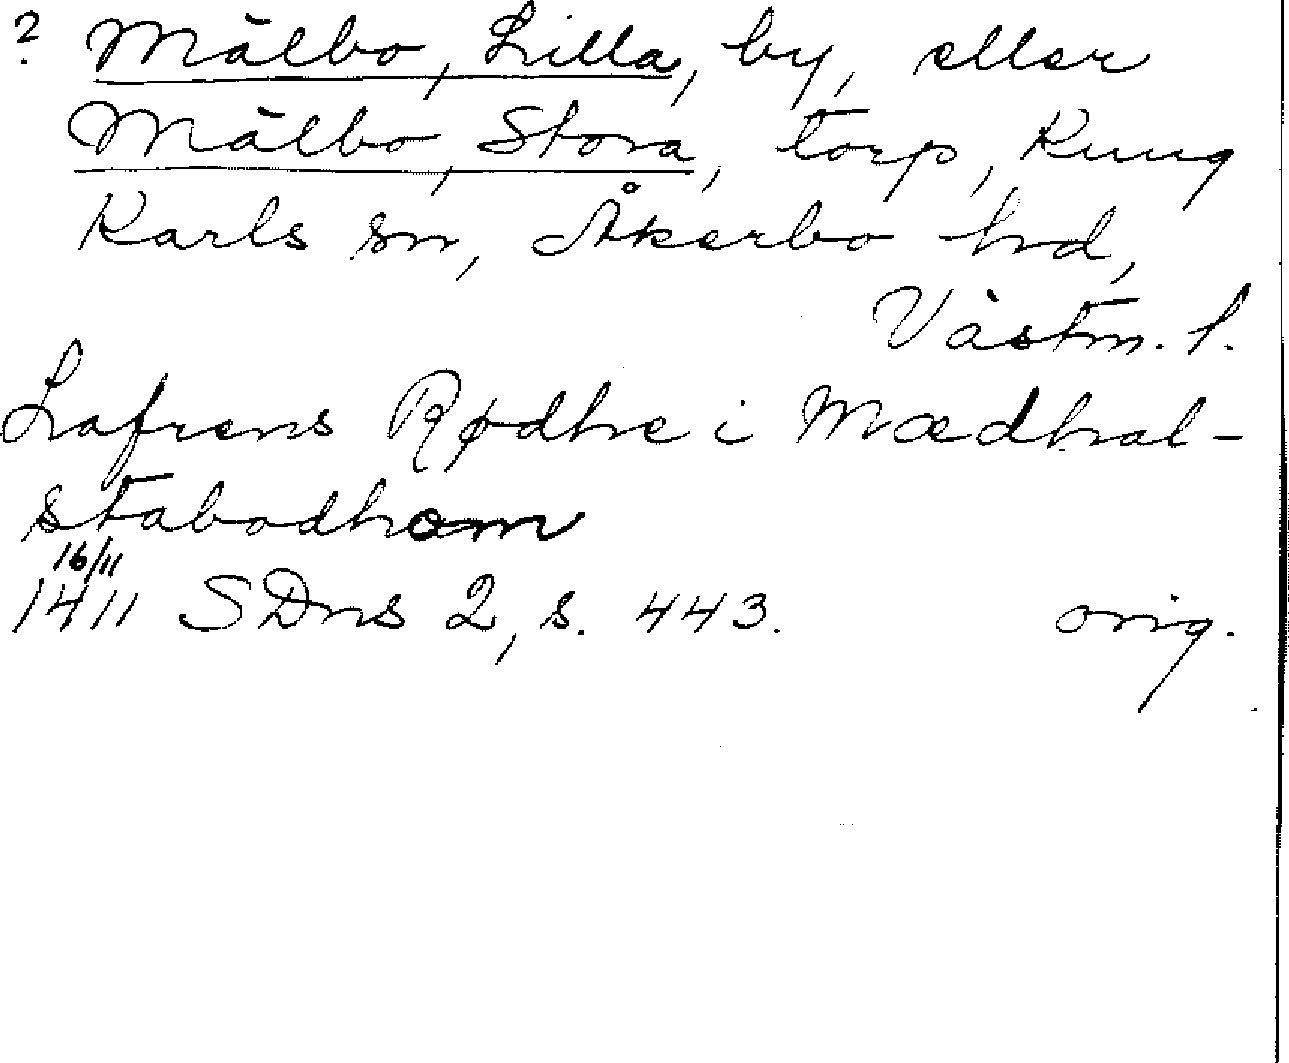 ? Mälbo, Lilla, by, eller
Mälbo, Stora, torp, Kung
Karls sn, Åkerbo hd,
Västm. l.
Lafrens Rødhe i Mædhal-
stabodhom
16/11
1411 SDns 2, s. 443. orig.